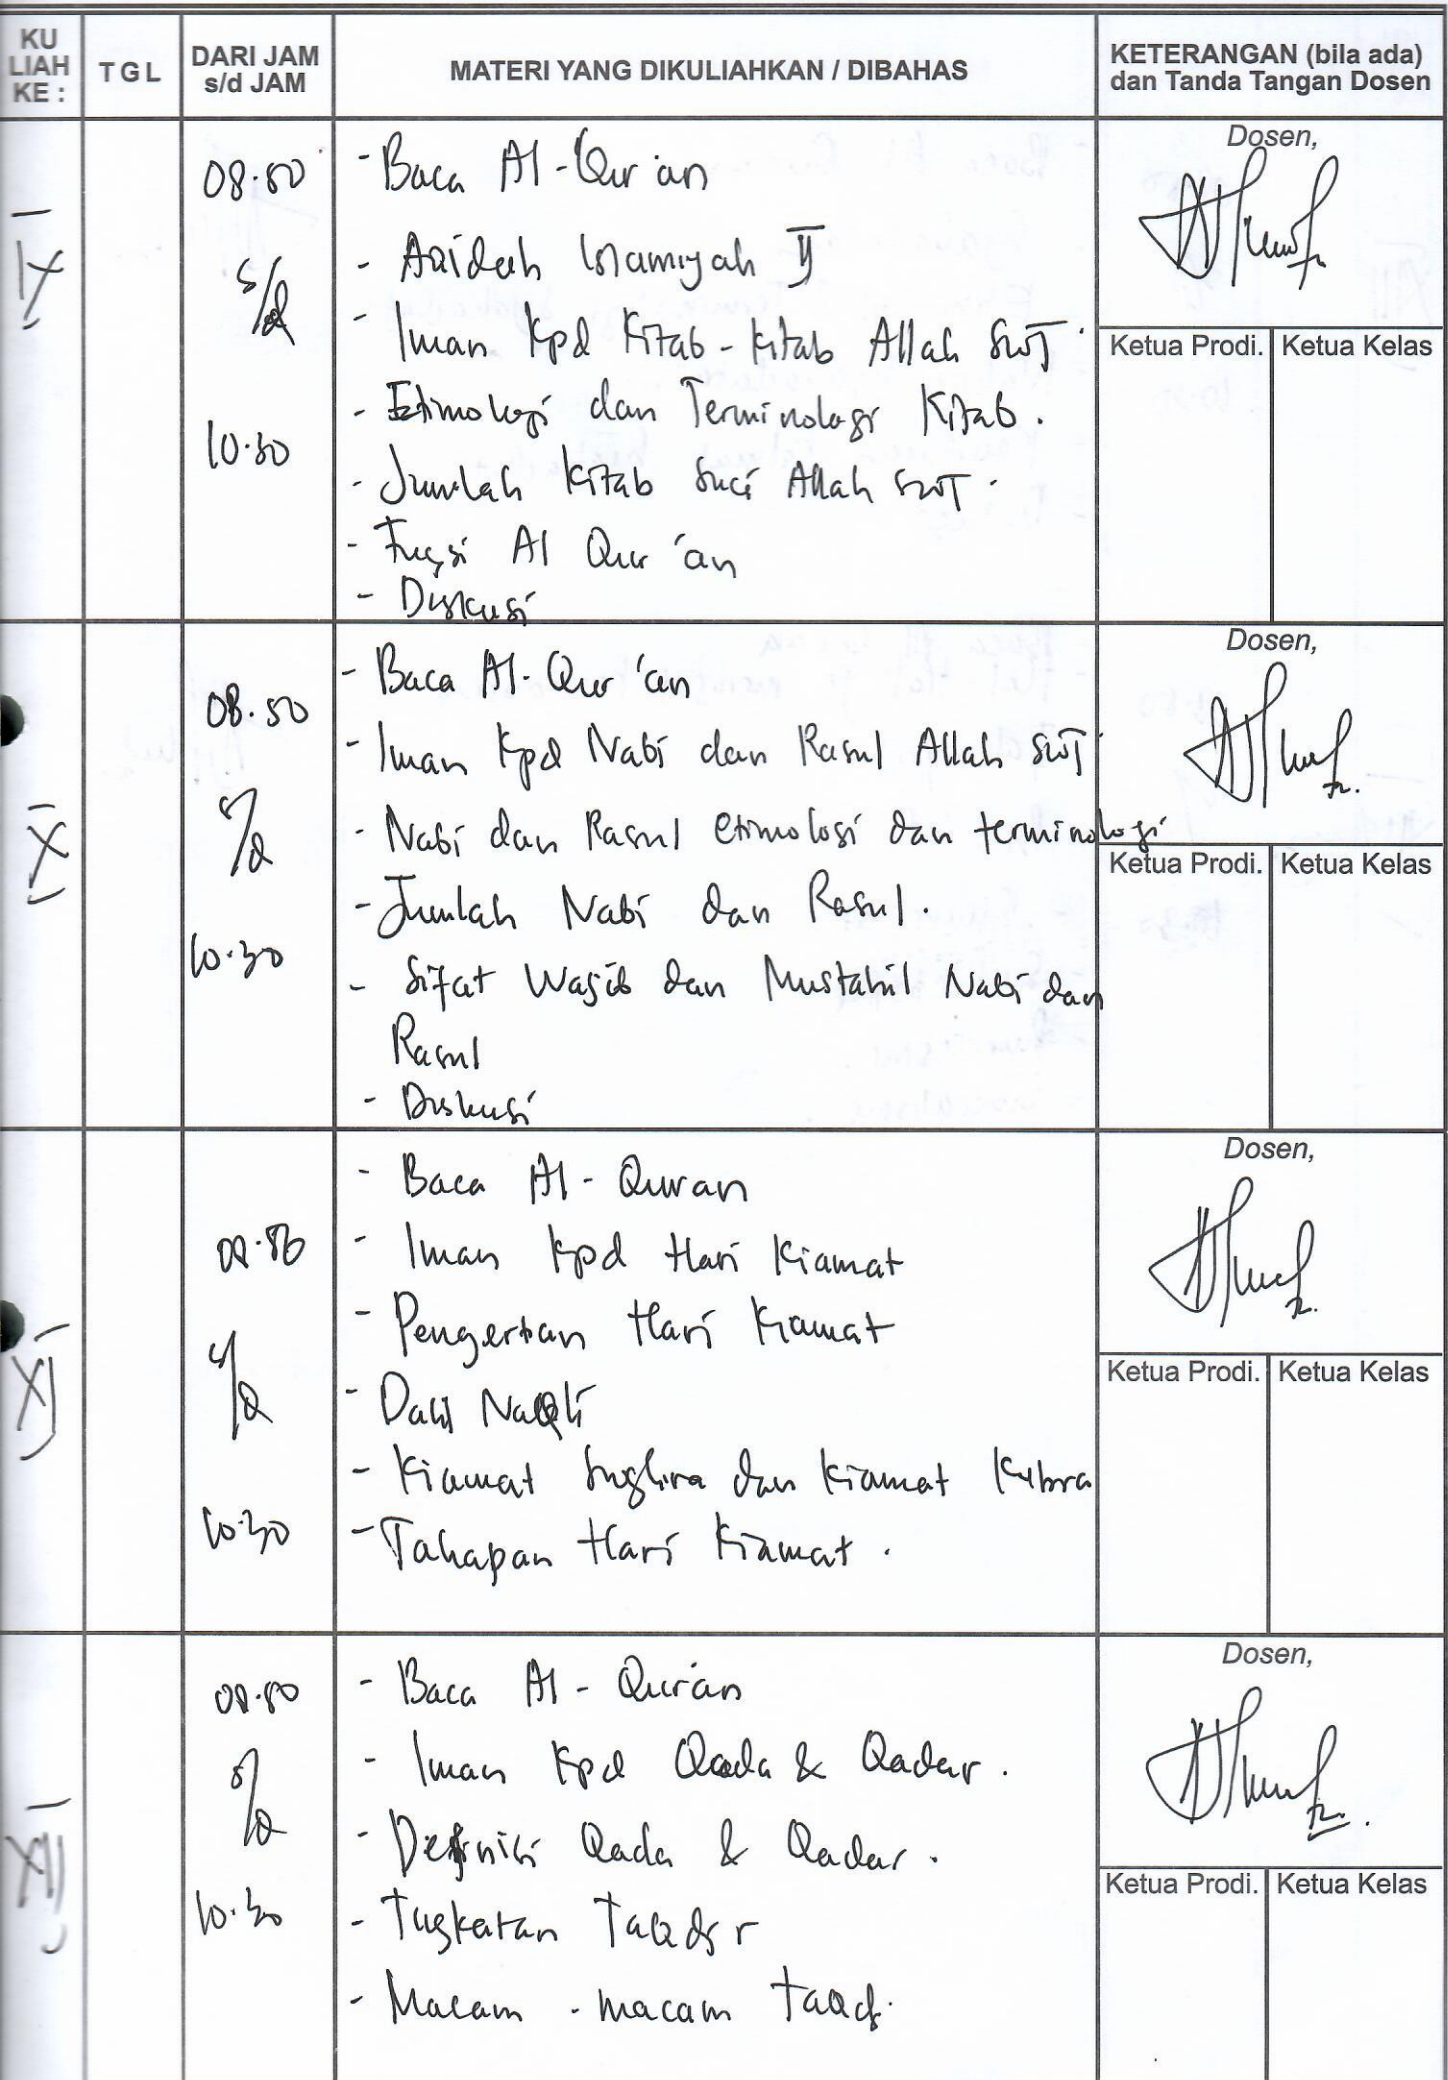 KU LIAH KE :
TGL
DARI JAM s/d JAM
MATERI YANG DIKULIAHKAN / DIBAHAS
KETERANGAN (bila ada) dan Tanda Tangan Dosen
IX
08.50
s/d
10.30
- Baca Al-Qur'an
- Aqidah Islamiyah II
- Iman kpd Kitab-kitab Allah SWT.
- Etimologi dan Terminologi Kitab.
- Jumlah Kitab Suci Allah SWT.
- Fugsi Al Qur'an
- Diskusi
Dosen,
Ketua Prodi.
Ketua Kelas
X
08.50
s/d
10.30
- Baca Al-Qur'an
- Iman kpd Nabi dan Rasul Allah SWT
- Nabi dan Rasul etimologi dan terminologi
- Jumlah Nabi dan Rasul.
- Sifat Wajib dan Mustahil Nabi dan
Rasul
- Diskusi
Dosen,
Ketua Prodi.
Ketua Kelas
XI
08.50
s/d
10.30
- Baca Al-Quran
- Iman kpd Hari Kiamat
- Pengertian Hari Kiamat
- Dalil Naqli
- Kiamat Sughra dan Kiamat Kubra
- Tahapan Hari Kiamat.
Dosen,
Ketua Prodi.
Ketua Kelas
XII
08.50
s/d
10.30
- Baca Al-Qur'an
- Iman kpd Qada & Qadar.
- Definisi Qada & Qadar.
- Tugkatan Taqdir
- Macam-macam Taqd.
Dosen,
Ketua Prodi.
Ketua Kelas